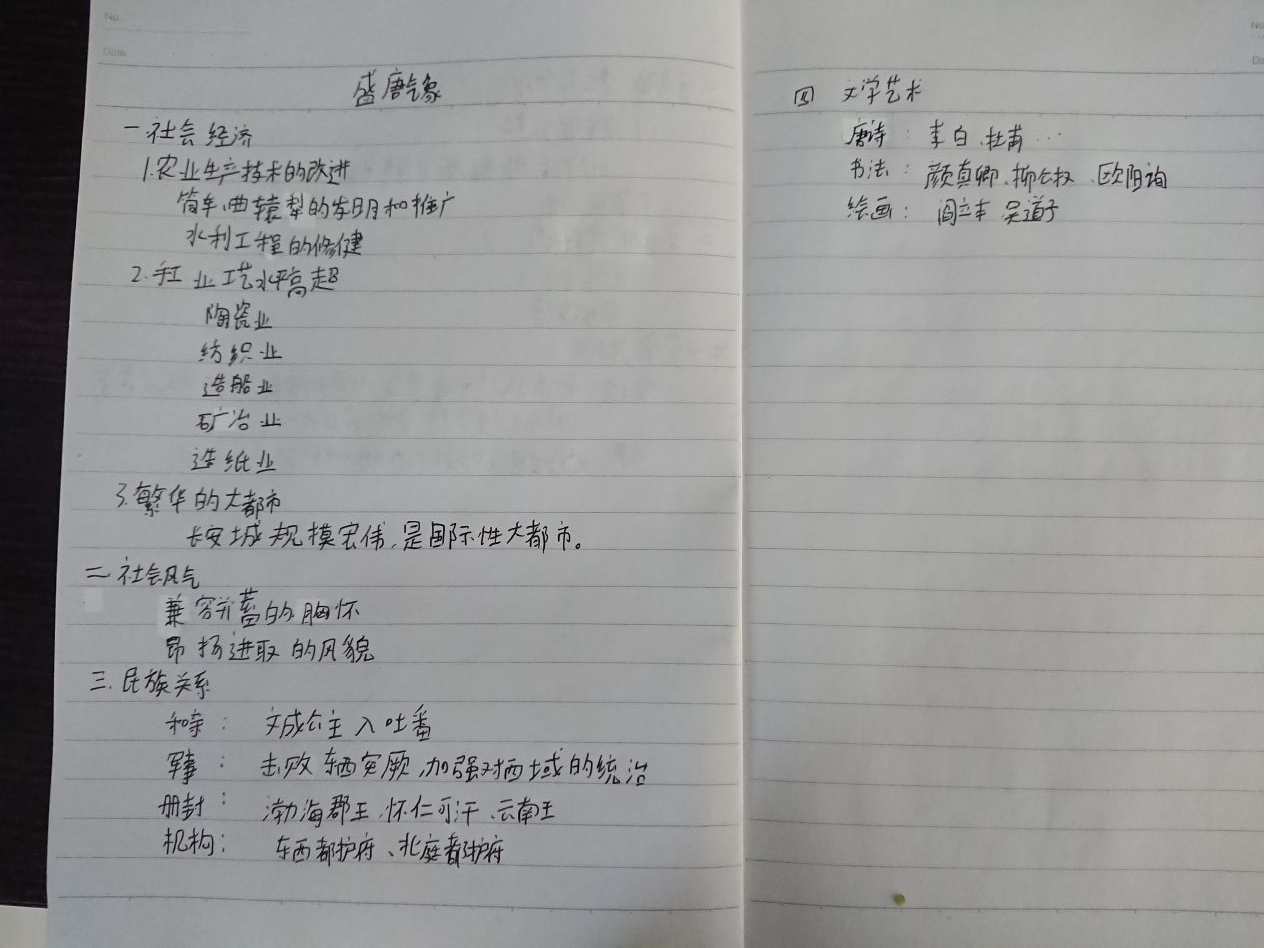 No.
Date
盛唐气象
一 社会经济
1.农业生产技术的改进
筒车、曲辕犁的发明和推广
水利工程的修健
2.手工业工艺水平高超
陶瓷业
纺织业
造船业
矿冶业
造纸业
3.繁华的大都市
长安城规模宏伟,是国际性大都市。
二 社会风气
兼容并蓄的胸怀
昂扬进取的风貌
三.民族关系
和亲: 文成公主入吐蕃
军事: 击败东西突厥,加强对西域的统治
册封: 渤海郡王、怀仁可汗、云南王
机构: 东西都护府、北庭都护府
四 文学艺术
唐诗: 李白、杜甫…
书法: 颜真卿、柳公权、欧阳询
绘画: 阎立本 吴道子